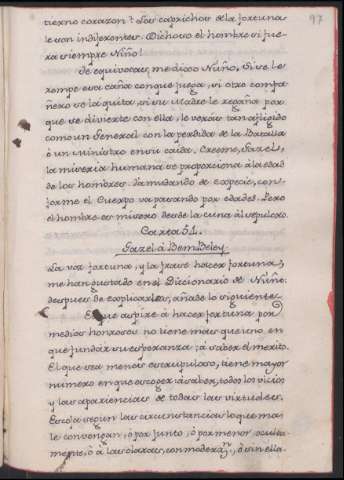 97
tierno corazon? Los caprichos de la fortuna
le son indiferentes. Dichoso el hombre si fue-
ra siempre Niño!
Te equivocas, me dixo Nuño, Si se le
rompe esa caña con que juega, si otro compa-
ñero se la quita, si su Madre le regaña por-
que se divierte con ella, le verás tan afligido
como un General con la perdida de la Batalla
ò un Ministro en su caida. Creeme, Gazel,
la miseria humana se proporciona à la edad
de los hombres. Va mudando de especie, con-
forme el Cuerpo va pasando por edades. Pero
el hombre es misero desde la cuna al sepulcro.
Carta 51.
Gazel à Ben Beley.
La voz fortuna, y la frase hacer fortuna,
me han gustado en el Diccionario de Nuño.
Despues de explicarlas, añade lo siguiente.
El que aspire à hacer fortuna por
medios honrosos no tiene mas que uno en
que fundar su esperanza; à saber el merito.
El que sea menos escrupuloso, tiene mayor
numero en que escoger à saber, todos los vicios
y las apariencias de todas las virtudes.
Escoja segun las circunstancias lo que mas
le convengan, ò por junto, ò por menor, oculta-
mente, ò à las claras, con moderaz.n, ò sin ella.